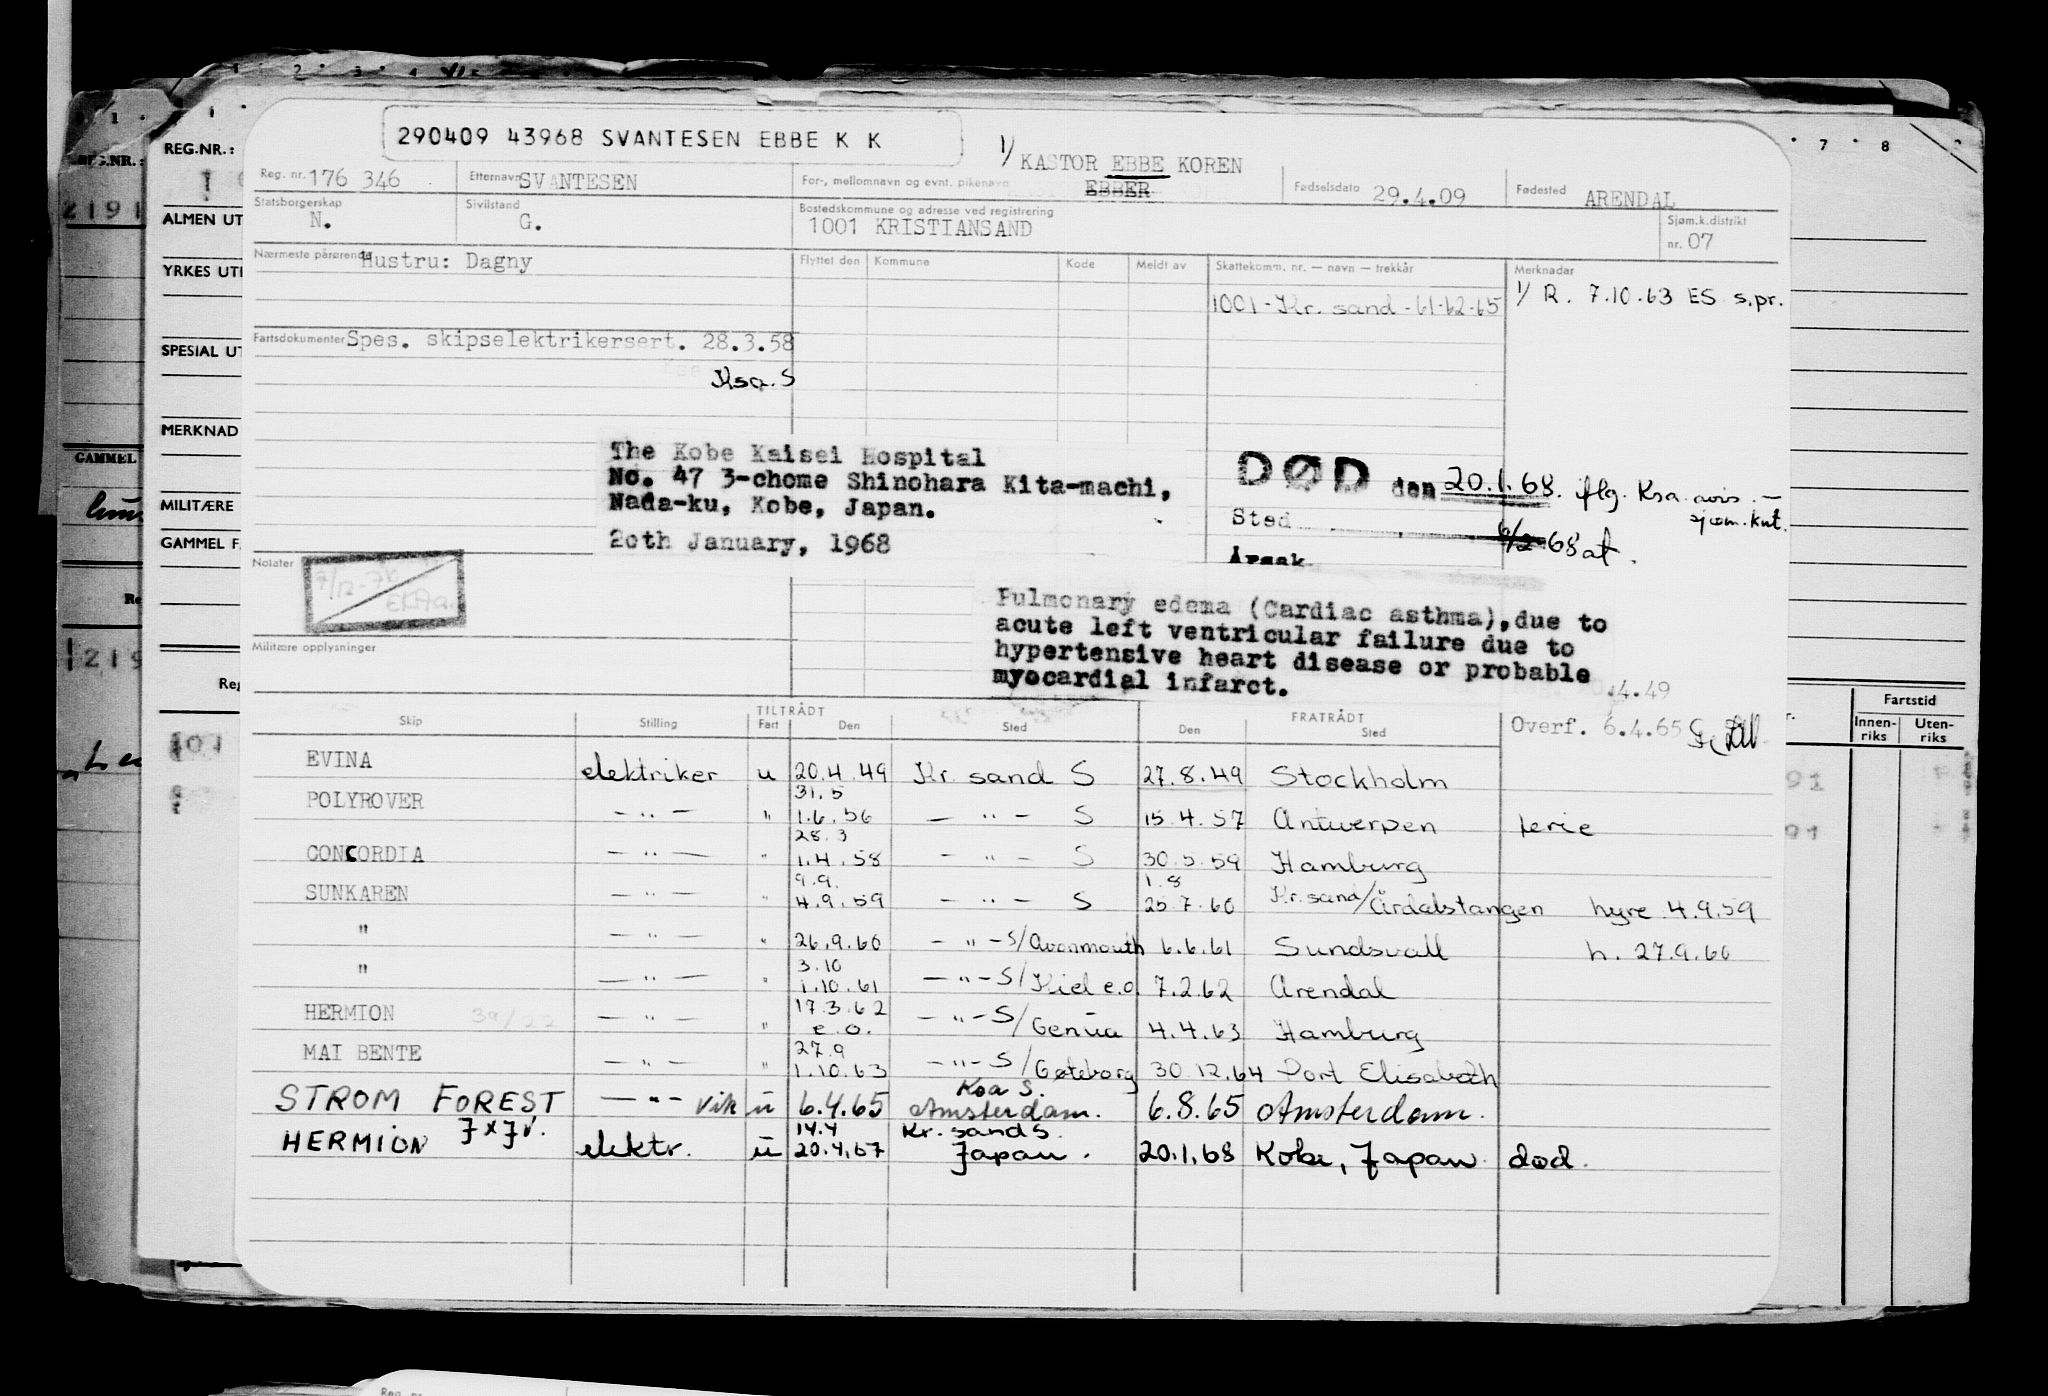 290409 43968 SVANTESEN EBBE K K
REG.NR.:
Reg. nr. 176 346
Etternavn SVANTESEN
For-, mellomnavn og evnt. pikenavn
1/ KASTOR EBBE KOREN
EBBER
Fødselsdato 29.4.09
Fødested ARENDAL
Statsborgerskap N.
Sivilstand G.
Bostedskommune og adresse ved registrering
1001 KRISTIANSAND
Sjøm.k.distrikt
nr. 07
Nærmeste pårørende Hustru: Dagny
Flyttet den Kommune Kode Meldt av
Skattekomm. nr. — navn — trekkår
1001 - Kr. sand - 61-62-65
Merknader
1/ R. 7.10.63 ES s.pr.
Fartsdokumenter Spes. skipselektrikersert. 28.3.58
Ksa. S
The Kobe Kaisei Hospital
No. 47 3-chome Shinohara Kita-machi,
Nada-ku, Kobe, Japan.
20th January, 1968
DØD den 20.1.68. iflg. Ksa. avis. —
sjøm. knt.
Sted
6/2-68 at.
Årsak
Notater
7/12-76
Pulmonary edema (Cardiac asthma),due to
acute left ventricular failure due to
hypertensive heart disease or probable
myocardial infarct.
Militære opplysninger
.4.49
Skip Stilling TILTRÅDT Fart Den Sted FRATRÅDT Den Sted
Overf. 6.4.65
EVINA elektriker u 20.4.49 Kr. sand S 27.8.49 Stockholm
31.5
POLYROVER — " — " 1.6.56 — " — S 15.4.57 Antwerpen ferie
28.3
CONCORDIA — " — " 1.4.58 — " — S 30.5.59 Hamburg
9.9. 1.8
SUNKAREN — " — " 4.9.59 — " — S 25.7.60 Kr. sand/Årdalstangen hyre 4.9.59
" — " — " 26.9.60 — " — S/Avonmouth 6.6.61 Sundsvall h. 27.9.60
3.10
" — " — " 1.10.61 — " — S/Kiel e.o. 7.2.62 Arendal
17.3.62
HERMION 39/22 — " — " e.o. — " — S/Genua 4.4.63 Hamburg
27.9
MAI BENTE — " — " 1.10.63 — " — S/Gøteborg 30.12.64 Port Elisabeth
Ksa S.
STROM FOREST — " — vik u 6.4.65 Amsterdam. 6.8.65 Amsterdam.
14.4 Kr. sand S.
HERMION elektr. u 20.4.67 Japan. 20.1.68 Kobe, Japan. død.
ALMEN UT
YRKES UT
SPESIAL UT
MERKNAD
MILITÆRE
GAMMEL F
GAMMEL
Fartstid
Innen-
riks
Uten-
riks
7 8
Reg. nr.